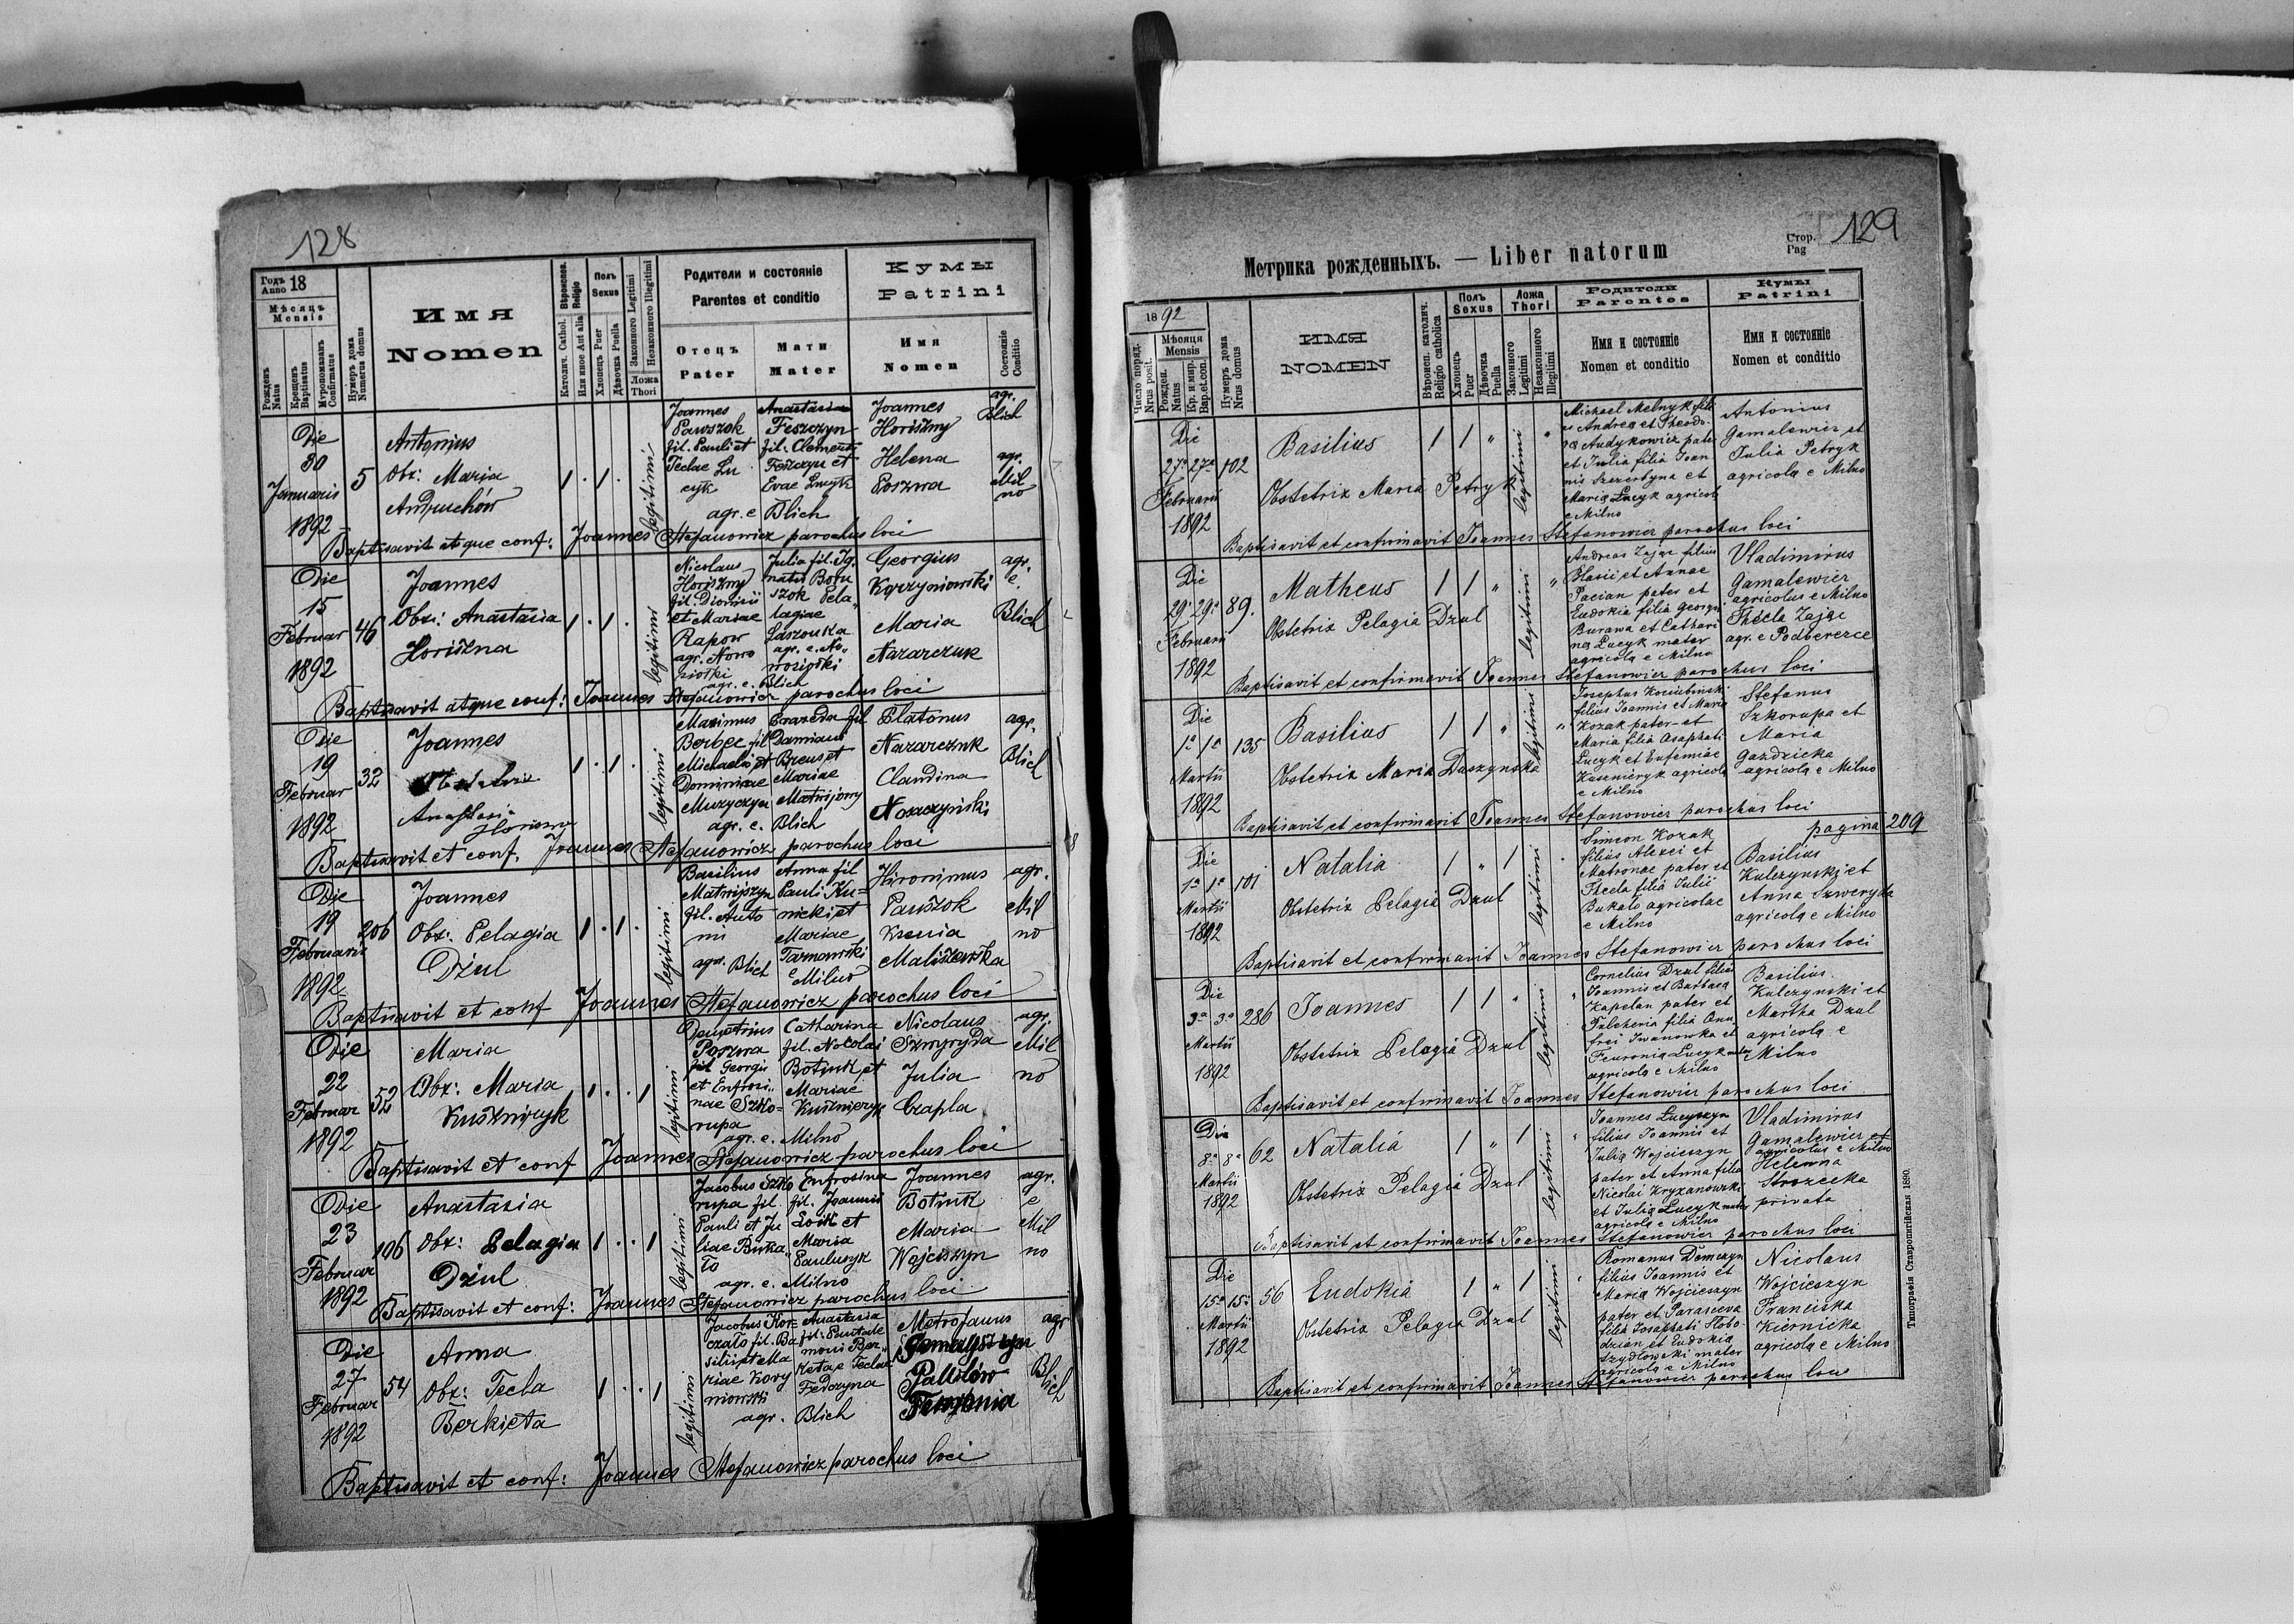 128
Годъ 18
Anno
Мѣсяцъ
Mensis
Рожденъ
Natus
Крещенъ
Baptisatus
Мѵропомазанъ
Confirmatus
Нумеръ дома
Numerus domus
Имя
Nomen
Вѣроиспов.
Religio
Католич. Cathol.
Или иное Aut alia
Полъ
Sexus
Хлопецъ Puer
Дѣвочка Puella
Законного Legitimi
Незаконного Illegitimi
Ложа
Thori
Родители и состояніе
Parentes et conditio
Отецъ
Pater
Мати
Mater
Кумы
Patrini
Имя
Nomen
Состояніе
Conditio
Die
30
Januaris
1892
5
Antonius
Obx: Maria
Andruchów
1 . 1 .
legitimi
Joannes
Pawszok
fil. Pauli et
Teclae Lu
cyk
Anastasia
Feszczyn
fil. Clementi
Feszczyn et
Evae Lucyk
agr. e Blich
Joannes
Horiszny
Helena
Poszwa
agr.
Blich
agr.
Mil
no
Baptisavit atque conf: Joannes Stefanowicz parochus loci
Die
15
Februar
1892
46
Joannes
Obx: Anastasia
Horiszna
1 . 1 .
legitimi
Nicolaus
Horiszny
fil. Dionisii
et Mariae
Rapow
agr. Nowo
siołki
Julia fil. Ig.
natii Botu
szok Pela„
lagiae
Laszouka
agr. e. No„
wosiołki
agr. e. Blich
Georgius
Korzyniowski
Maria
Nazarczuk
agr.
e.
Blich
Baptisavit atque conf: Joannes Stefanowicz parochus loci
Die
19
Februar
1892
32
Joannes
Anastasia
Horiszna
1 . 1 .
legitimi
Maximus
Berbec fil
Michaeli et
Dominicae
Muzyczyn
Parazeda fil
Damiani
Breus et
Mariae
Matwijowy
agr. e. Blich
Platonus
Nazarczuk
Claudina
Noszczyński
agr.
Blich
Baptisavit et conf. Joannes Stefanowicz parochus loci
Die
19
Februaris
1892
206
Joannes
Obx: Pelagia
Dżul
1 . 1 .
legitimi
Basilius
Matwijszyn
fil. Anto
nii
agr. Blich
Anna fil
Pauli Ku=
nicki et
Mariae
Tarnowski
e Milno
Hironimus
Pauszok
Ksenia
Maliszewska
agr.
Mil
no
Baptisavit et conf Joannes Stefanowicz parochus loci
Die
22
Februar
1892
52
Maria
Obx: Maria
Kuszniryk
1 . . 1
legitimi
Demetrius
Poszwa
fil Georgii
et Enfrosi„
nae Szko=
rupa
Catharina
fil. Nicolai
Botiuk et
Mariae
Kuszneryk
agr. e. Milno
Nicolaus
Szwyryda
Julia
Czapla
agr.
Mil
no
Baptisavit et conf Joannes Stefanowicz parochus loci
Die
23
Februar
1892
106
Anastasia
Obx: Pelagia
Dżul
1 . . 1
legitimi
Jacobus Szko
rupa fil.
Pauli et Ju
liae Buka„
ło
Enfrosina
fil. Joannis
Łoik et
Maria
Pauluszyk
agr. e. Milno
Joannes
Botiuk
Maria
Wojciszyn
agr.
e
Mil
no
Baptisavit et conf: Joannes Stefanowicz parochus loci
Die
27
Februar
1892
54
Anna
Obx: Tecla
Berkieta
1 . . 1
legitimi
Jacobus Kor=
czało fil. Ba
silii et Ma
riae Kory
niowski
Anastasia
fil: Pantale
moni Ber„
keta e Teclae
Fedczyna
agr. Blich
Metrofanus
Pawlów
agr
Blich
Baptisavit et conf: Joannes Stefanowicz parochus loci
Метрика рожденныхъ. — Liber natorum
Стор.
Pag
129
1892
Число поряд.
Nrus posit.
Мѣсяця
Mensis
Рожден.
Natus
Кр. и мир.
Bap. et con.
Нумеръ дома
Nrus domus
ИМЯ
NOMEN
Вѣроисп. католич.
Religio catholica
Полъ
Sexus
Хлопецъ
Puer
Дѣвочка
Puella
Ложа
Thori
Законного
Legitimi
Незаконного
Illegitimi
Родители
Parentes
Имя и состояніе
Nomen et conditio
Кумы
Patrini
Имя и состояніе
Nomen et conditio
Die
27ª 27ª
Februarii
1892
102
Basilius
Obstetrix Maria Petryk
1 1 „
legitimi
Michael Melnyk fili
us Andrea et Theodo
ra Andykowicz pater
et Julia filia Joan
nis Szezertyna et
Maria Lucyk agricol
e Milno
Antonius
Gamalewicz et
Julia Petryk
agricola e Milno
Baptisavit et confirmavit Joannes Stefanowicz parochus loci
Die
29ª 29ª
Februarii
1892
89.
Matheus
Obstetrix Pelagia Dzul
1 1 „
legitimi
Andreas Zajac filius
Blasii et Annae
Pacian pater et
Eudokia filia Georgii
Burawa et Cathari
na Lucyk mater
agricola e Milno
Vladimirus
Gamalewicz
agricolus e Milno
Thecla Zajac
agr. e Podberezce
Baptisavit et confirmavit Joannes Stefanowicz parochus loci
Die
1ª 1ª
Martii
1892
135
Basilius
Obstetrix Maria Daszynska
1 1 „
legitimi
Josephus Kociubinski
filius Joannis et Maria
Kozak pater et
Maria filia Asaphati
Lucyk et Eufemiae
Kuszneryk agricola
e Milno
Stefanus
Szkorupa et
Maria
Gazdzicka
agricola e Milno
Baptisavit et confirmavit Joannes Stefanowicz parochus loci
pagina 209
Die
1ª 1ª
Martii
1892
101
Natalia
Obstetrix Pelagia Dzul
1 „ 1
legitimi
Simeon Kozak
filius Alexei et
Matronae pater et
Thecla filia Julii
Bukalo agricolae
e Milno
Basilius
Kulczynski et
Anna Szweryda
agricola e Milno
Baptisavit et confirmavit Joannes Stefanowicz parochus loci
Die
3ª 3ª
Martii
1892
286
Joannes
Obstetrix Pelagia Dzul
1 1 „
legitimi
Cornelius Dzul filius
Joannis et Barbara
Kapelan pater et
Pulcheria filia Onu
frei Iwanowka et
Feuronia Lucyk mater
agricola e Milno
Basilius
Kulczynski et
Martha Dzul
agricola e
Milno
Baptisavit et confirmavit Joannes Stefanowicz parochus loci
Die
8ª 8ª
Martii
1892
62
Natalia
Obstetrix Pelagia Dzul
1 „ 1
legitimi
Joannes Lucyszyn
filius Joannis et
Julia Wojcieszyn
pater et Anna filia
Nicolai Kryzanowski
et Julia Lucyk mater
agricola e Milno
Vladimirus
Gamalewicz et
agricolus e Milno
Helenna
Strozecka
privata
Baptisavit et confirmavit Joannes Stefanowicz parochus loci
Die
15ª 15ª
Martii
1892
56
Eudokia
Obstetrix Pelagia Dzul
1 „ 1
legitimi
Romanus Demczyn
filius Joannis et
Maria Wojcieszyn
pater et Parasceva
filia Josaphati Slobo
dzian et Eudokia
Szydlowski mater
agricola e Milno
Nicolaus
Wojcieszyn
Franciska
Kiernicka
agricola e Milno
Baptisavit et confirmavit Joannes Stefanowicz parochus loci
Типографія Ставропигійская 1890.